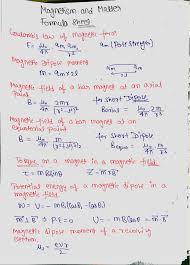 Magnetism and Matter
Formula Sheet
Coulomb's law of magnetic force
F = μ₀/4π qm₁ qm₂/r² qm (Pole Strength)
Magnetic Dipole moment
m = qm × 2l
Magnetic field of a bar magnet at an axial point
for short Dipole
B = μ₀/4π 2mr/(r²-l²)² Baxial = μ₀/4π 2m/r³
Magnetic field of a bar magnet at an
equatorial point
for short Dipole
B = μ₀/4π m/(r²+l²)^3/2 = μ₀/4π m/r³
Torque on a magnet in a magnetic field
τ = mB sinθ τ = m × B
Potential energy of a magnetic dipole in a
magnetic field
W = U = -mB(cosθ₂ - cosθ₁)
U = -mB cosθ = -m·B
Magnetic dipole moment of a revolving
electron
= evr/2